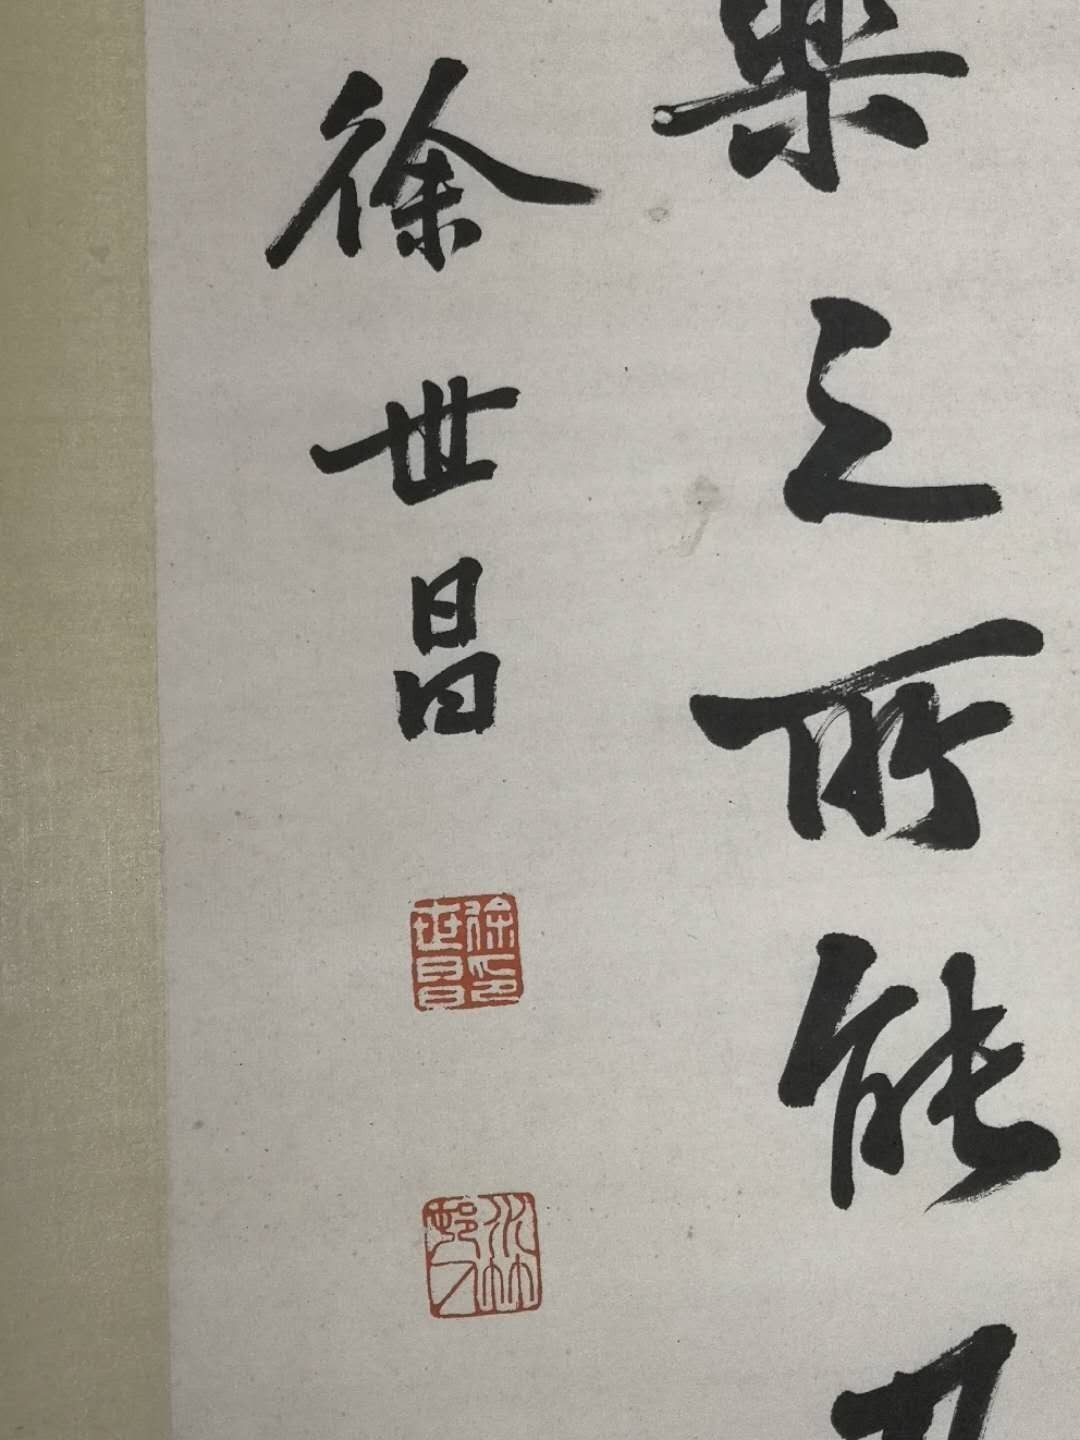 樂之所能
徐世昌
徐世昌印
水竹邨人